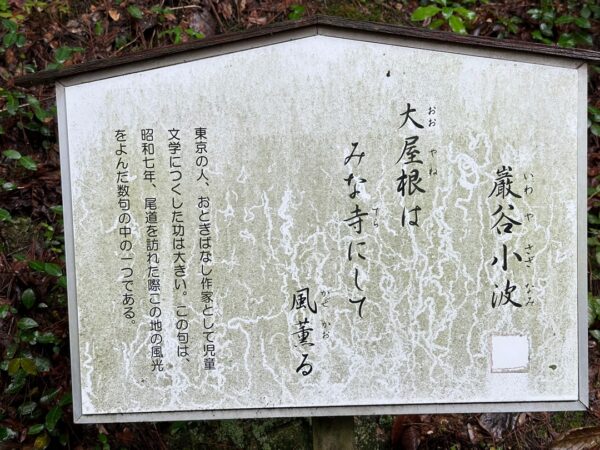 巖谷小波
いわ や さざ なみ
大屋根は
おお や ね
みな寺にして
でら
風薫る
かぜ かお
東京の人、おとぎばなし作家として児童
文学につくした功は大きい。この句は、
昭和七年、尾道を訪れた際この地の風光
をよんだ数句の中の一つである。